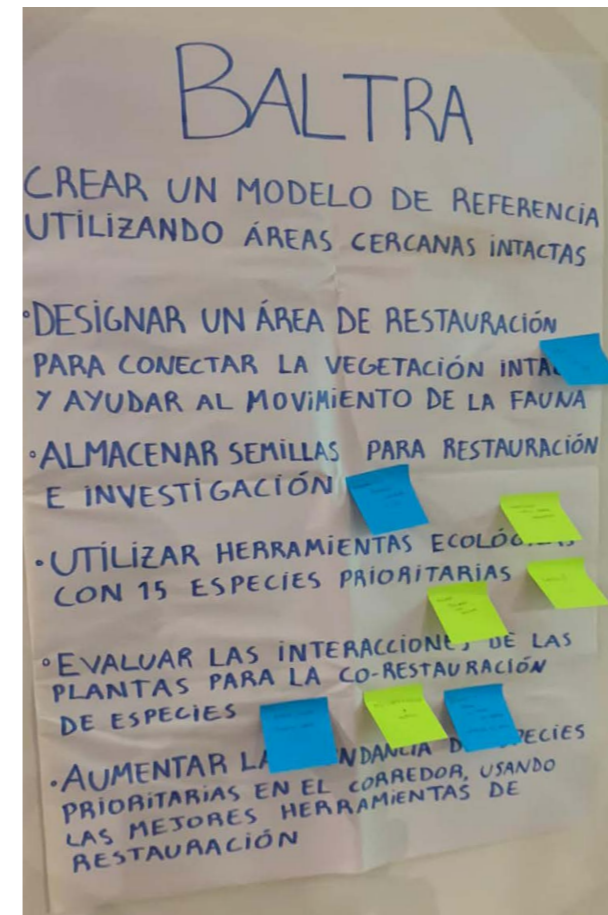 BALTRA
CREAR UN MODELO DE REFERENCIA
UTILIZANDO ÁREAS CERCANAS INTACTAS
DESIGNAR UN ÁREA DE RESTAURACIÓN
PARA CONECTAR LA VEGETACIÓN
Y AYUDAR AL MOVIMIENTO DE LA FAUNA
ALMACENAR SEMILLAS PARA RESTAURACIÓN
E INVESTIGACIÓN
UTILIZAR HERRAMIENTAS
CON 15 ESPECIES PRIORITARIAS
EVALUAR LAS INTERACCIONES DE LAS
PLANTAS PARA LA CO-RESTAURACIÓN
DE ESPECIES
AUMENTAR
PRIORITARIAS EN EL CORREDOR, USANDO
LAS MEJORES HERRAMIENTAS DE
RESTAURACIÓN